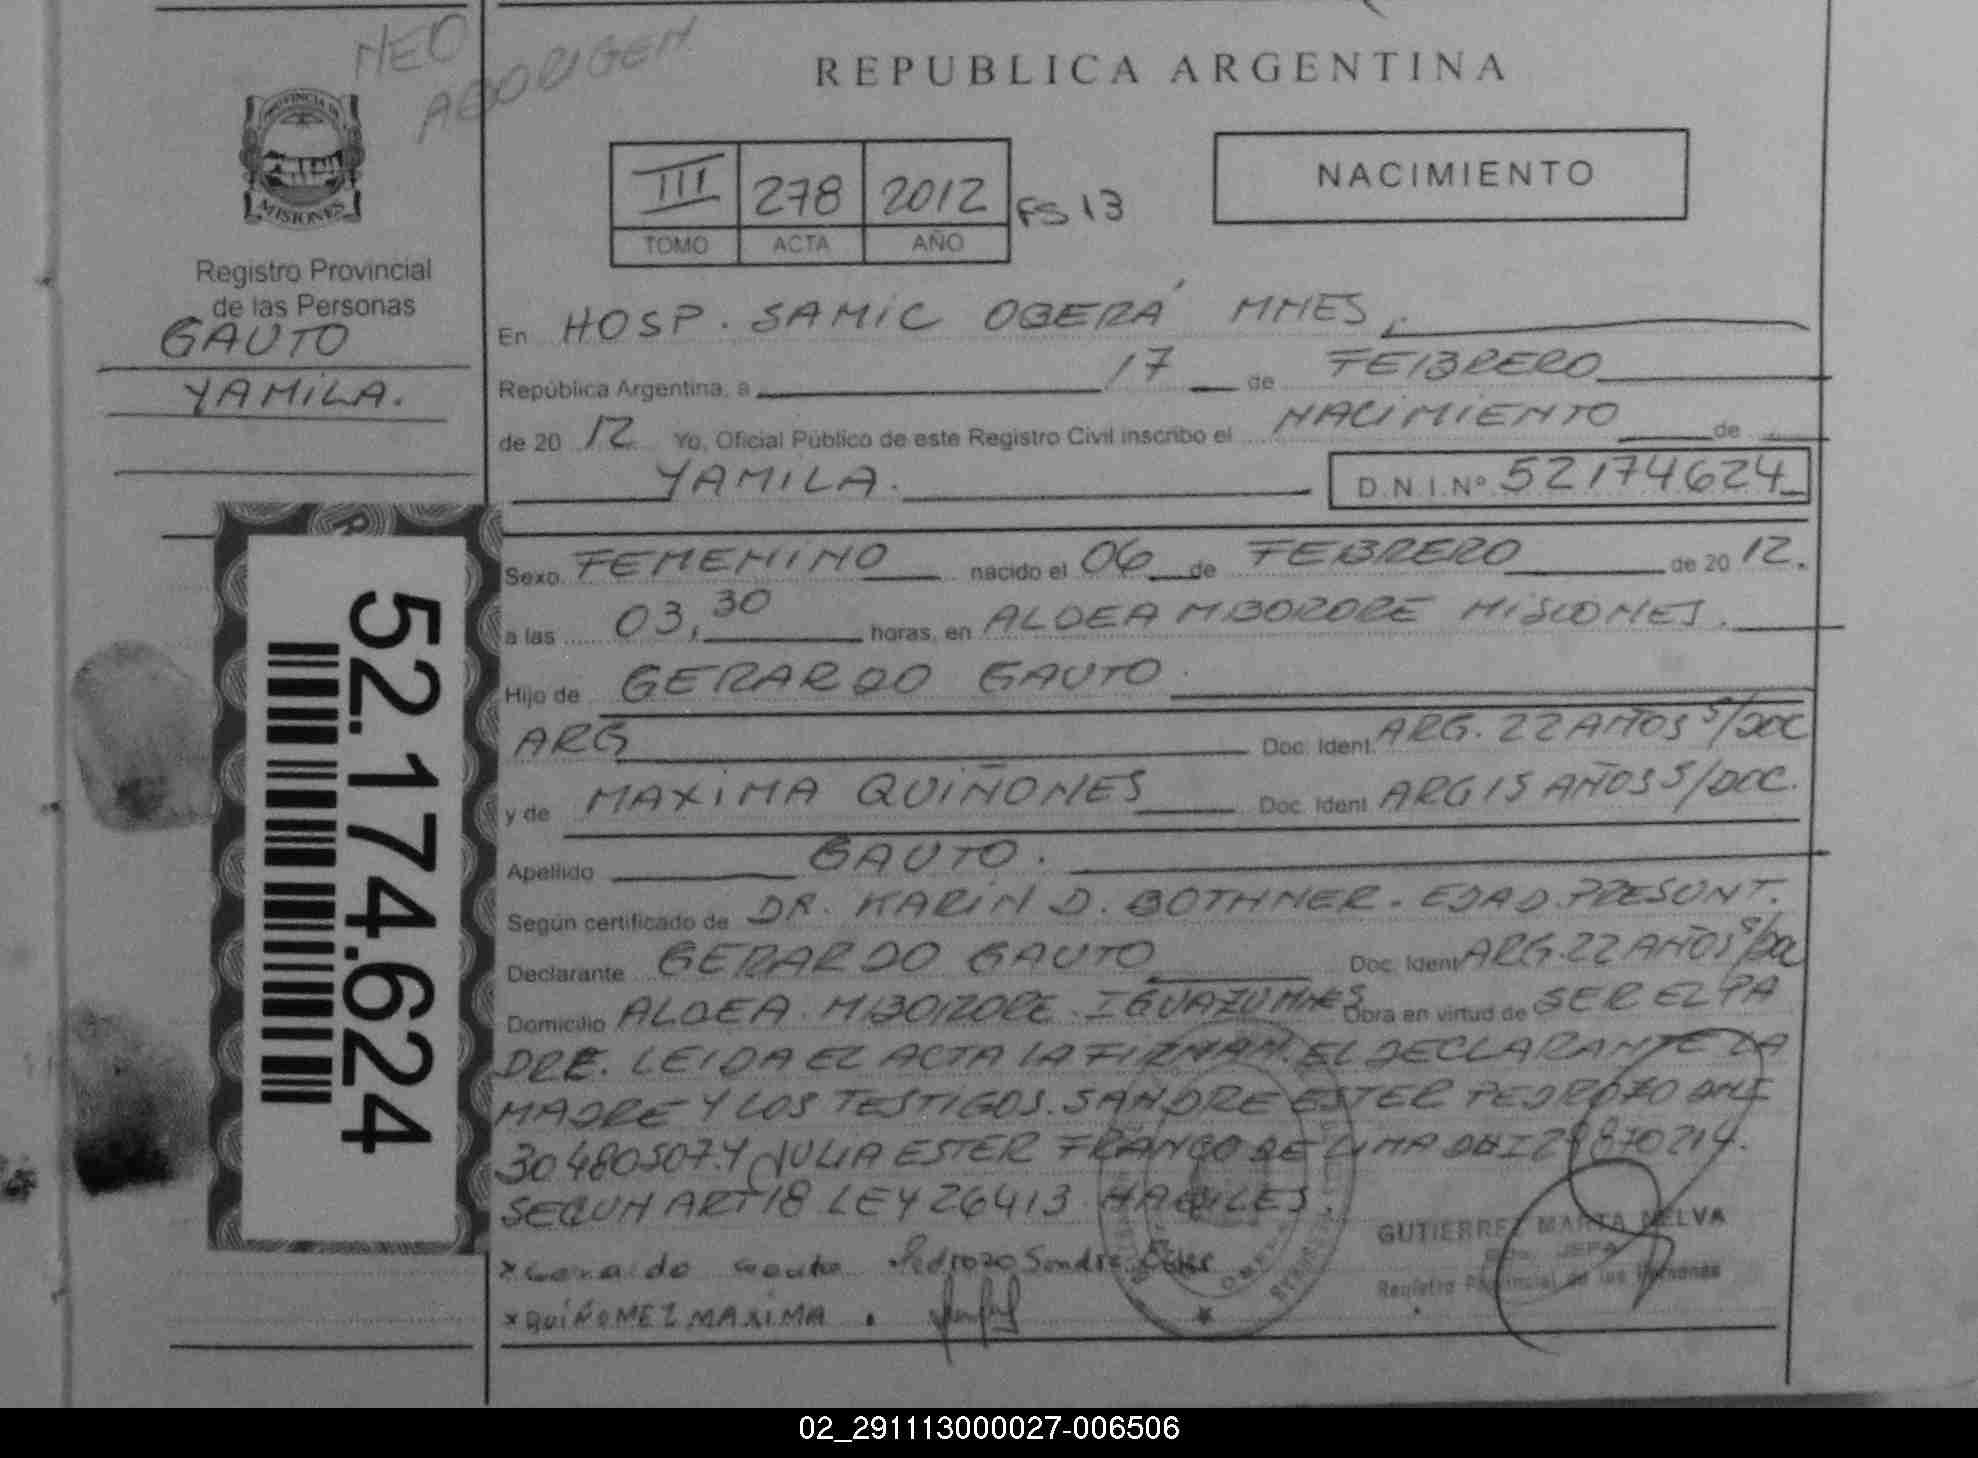 NEO
ABORIGEN
PROVINCIA DE
MISIONES
Registro Provincial
de las Personas
GAUTO
YAMILA.
52.174.624
REPUBLICA ARGENTINA
III 278 2012 FS 13
TOMO ACTA AÑO
NACIMIENTO
En HOSP. SAMIC OBERÁ MNES.
República Argentina, a 17 de FEBRERO
de 20 12 Yo, Oficial Público de este Registro Civil inscribo el NACIMIENTO de
YAMILA. D.N.I.Nº 52174624
Sexo FEMENINO nacido el 06 de FEBRERO de 20 12.
a las 03,30 horas, en ALDEA MBORORE MISIONES.
Hijo de GERARDO GAUTO
ARG Doc. Ident. ARG. 22 AÑOS S/DOC
y de MAXIMA QUIÑONES Doc. Ident ARG 15 AÑOS S/DOC.
Apellido GAUTO.
Según certificado de DR. KARIN D. BOTHNER. EDAD PRESUNT.
Declarante GERARDO GAUTO Doc. Ident ARG. 22 AÑOS S/DOC
Domicilio ALDEA MBORORE. IGUAZU MNES Obra en virtud de SER EL PA
DRE. LEIDA EL ACTA LA FIRMAN. EL DECLARANTE LA
MADRE Y LOS TESTIGOS. SANDRE ESTER PEDROZO DNI
30480507. Y JULIA ESTER FRANCO DE LIMA DNI 29870214.
SEGUN ART 18 LEY 26413 HABILES.
x Gerardo Gauto Pedrozo Sandra Ester
x QUIÑONEZ MAXIMA.
GUTIERREZ MARTA NELVA
JEFA
Registro Provincial de las Personas
02_291113000027-006506